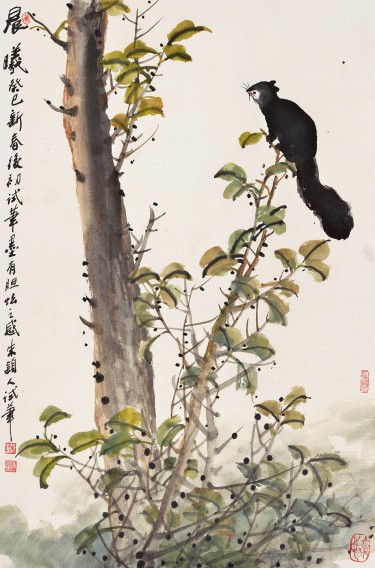 晨曦
癸巳新春後初試筆墨有胆怯之感朱穎人試筆